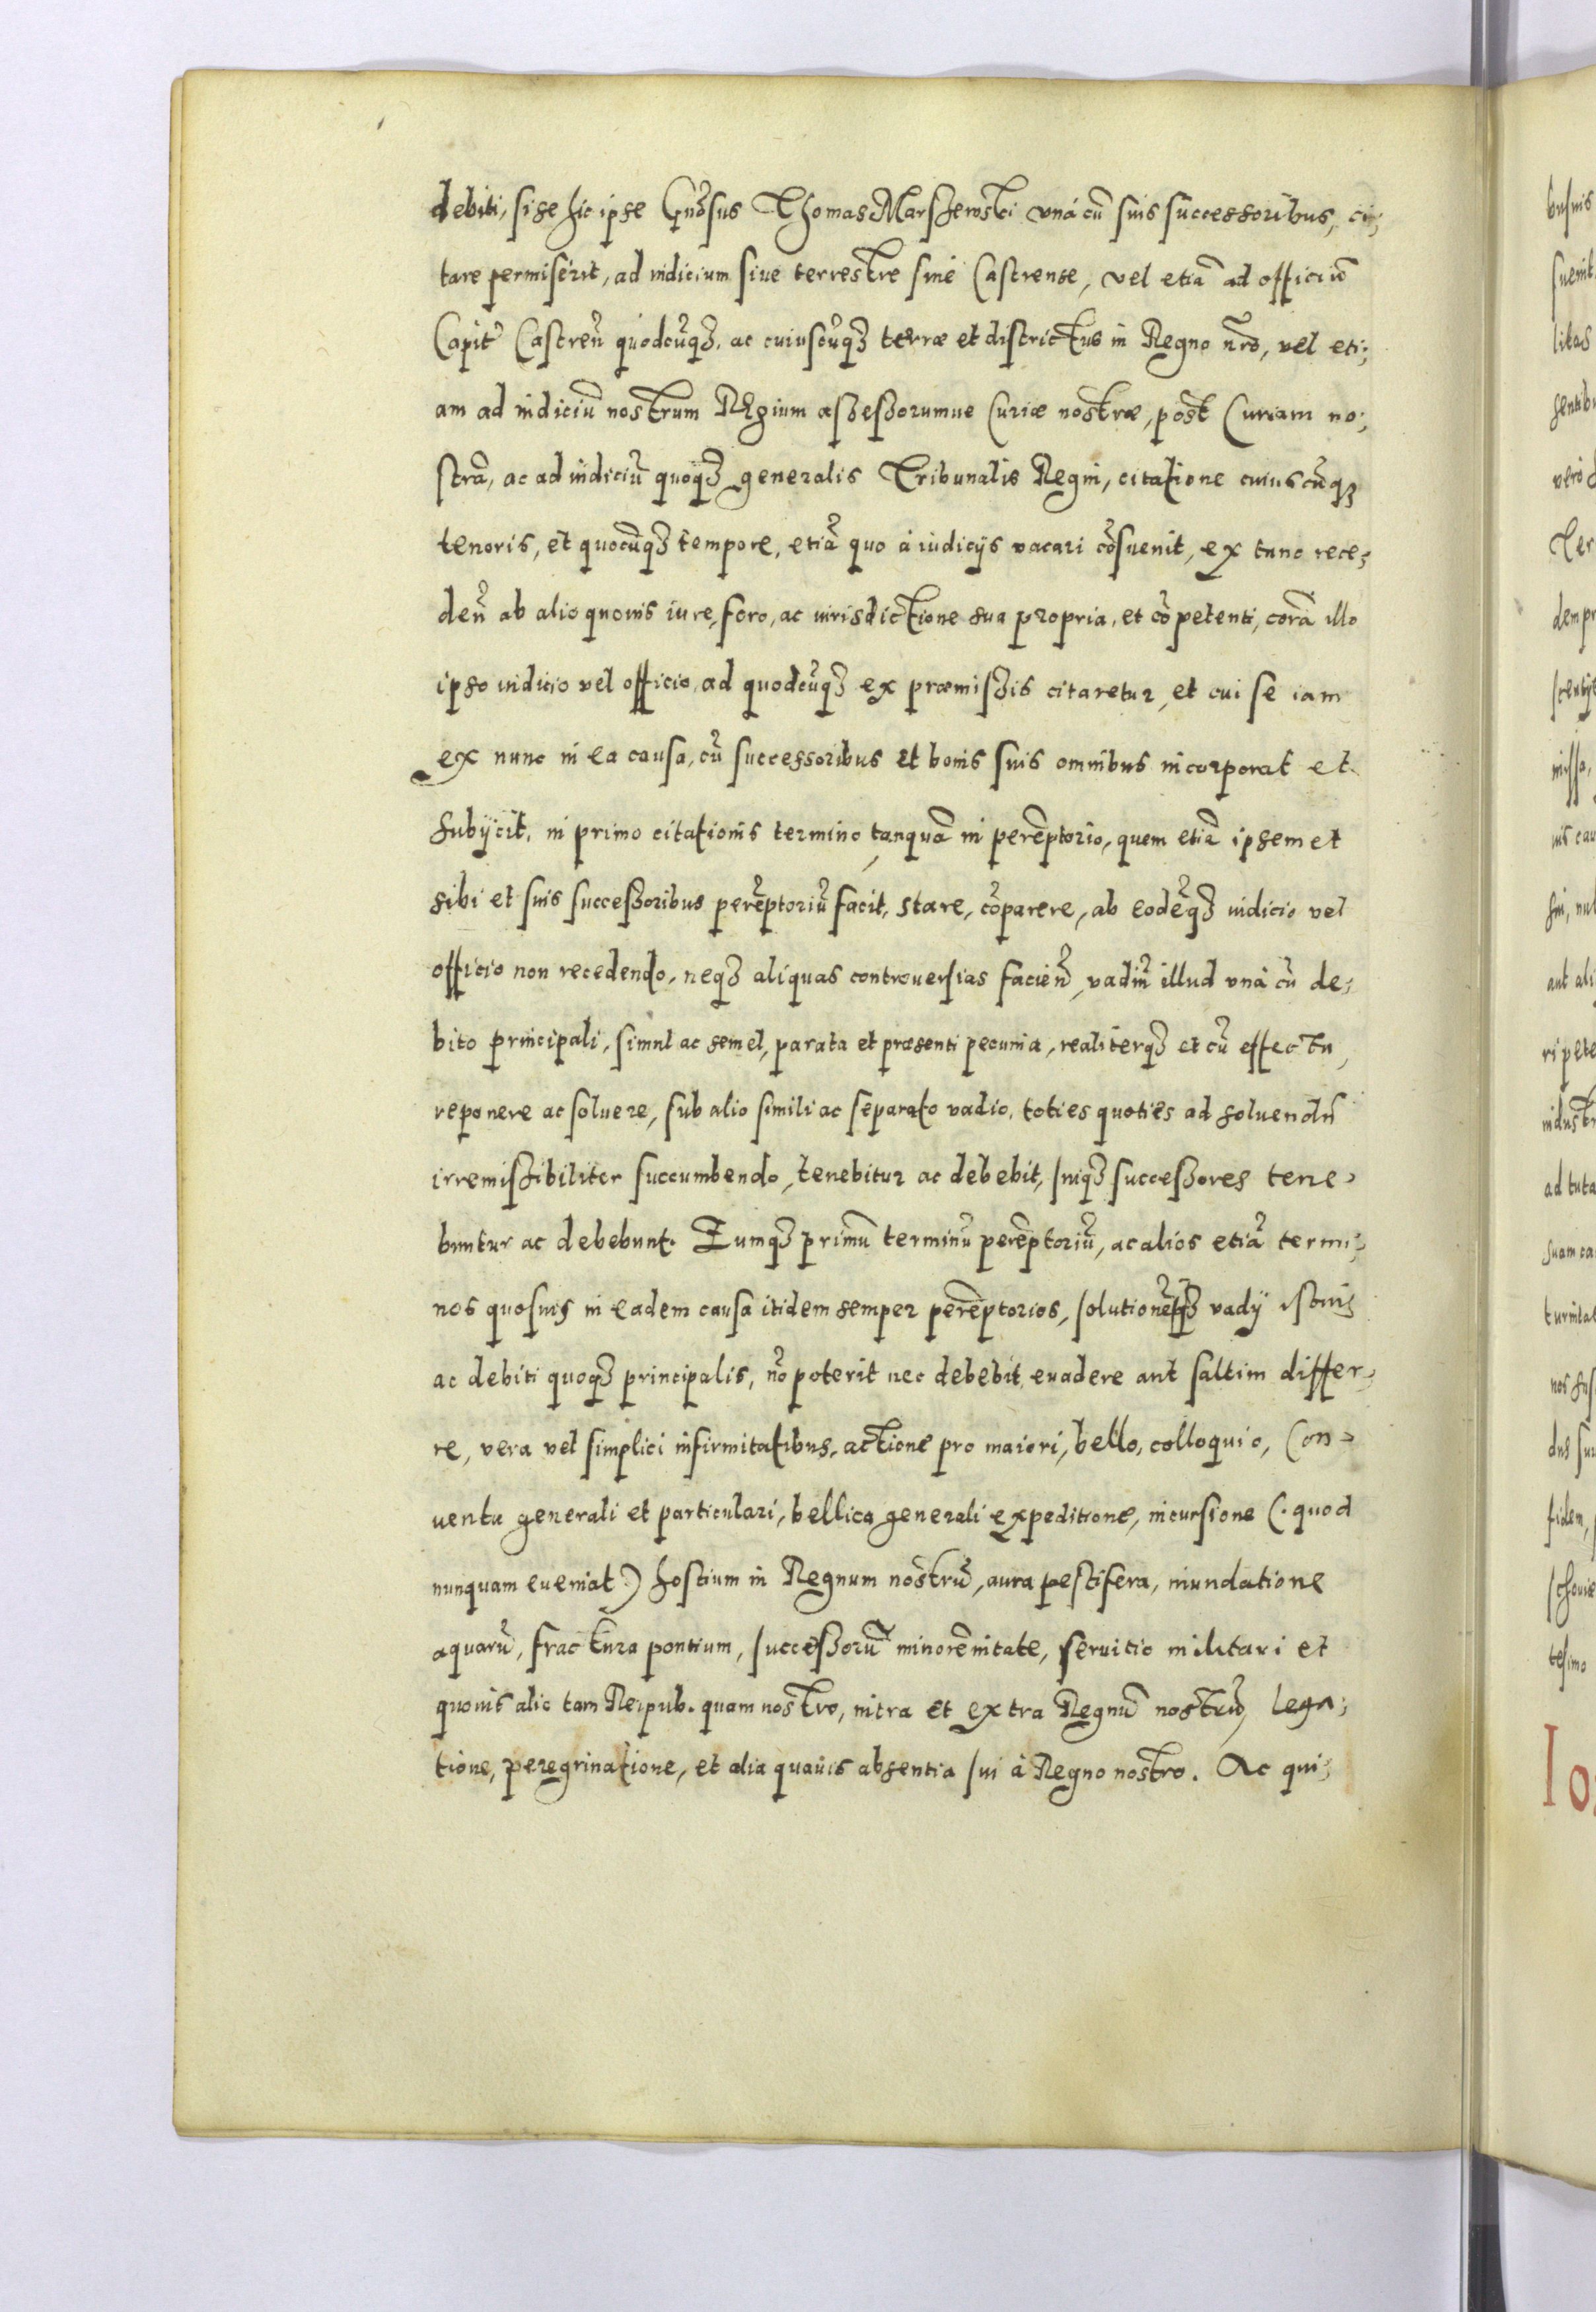 debiti, si se hic ipse Gnosus Thomas Marszewski vná cũ suis successoribus, ci;
tare permiserit, ad iudicium siue terrestre siue Castrense, vel etiã ad officiũ
Capit Castreñ quodcũqȝ, ac cuiuscũqȝ terræ et districtus in Regno nr̃o, vel eti;
am ad iudiciũ nostrum Regium assessorumue Curiæ nostræ, post Curiam no;
strã, ac ad iudiciũ quoqȝ generalis Tribunalis Regni, citatione cuiuscũqȝ
tenoris, et quocũqȝ tempore, etiã quo à iudicijs vacari cõsueuit, ex tunc rece;
deñ ab alio quouis iure, foro, ac iurisdictione sua propria, et cõpetenti, corã illo
ipso iudicio vel officio, ad quodcũqȝ ex præmissis citaretur, et cui se iam
ex nunc in ea causa, cũ successoribus et bonis suis omnibus incorporat et
subijcit, in primo citationis termino tanquã in perẽptorio, quem etiã ipsemet
sibi et suis successoribus perẽptoriũ facit, stare, cõparere, ab eodẽqȝ iudicio vel
officio non recedendo, neqȝ aliquas controuersias facieñ, vadiũ illud vnà cũ de;
bito principali, simul ac semel, parata et præsenti pecunia, realiterqȝ et cũ effectu,
reponere ac soluere, sub alio simili ac separato vadio, toties quoties ad soluendũ
irremissibiliter succumbendo, tenebitur ac debebit, suiqȝ successores tene,
buntur ac debebunt. Eumqȝ primũ terminũ perẽptoriũ, ac alios etiã termi;
nos quosuis in eadem causa itidem semper perẽptorios, solutionẽqȝ vadij istius
ac debiti quoqȝ principalis, nõ poterit nec debebit euadere aut saltim differ,
re, vera vel simplici infirmitatibus, actione pro maiori, bello, colloquio, Con,
uentu generali et particulari, bellica generali expeditione, incursione (. quod
nunquam eueniat.) hostium in Regnum nostrũ, aura pestifera, inundatione
aquarũ, fractura pontium, successorũ minorẽnitate, seruitio militari et
quouis alio tam Reipub. quam nostro, intra et extra Regnũ nostrũ, lega;
tione, peregrinatione, et alia quauis absentia sui à Regno nostro. Ac qui;